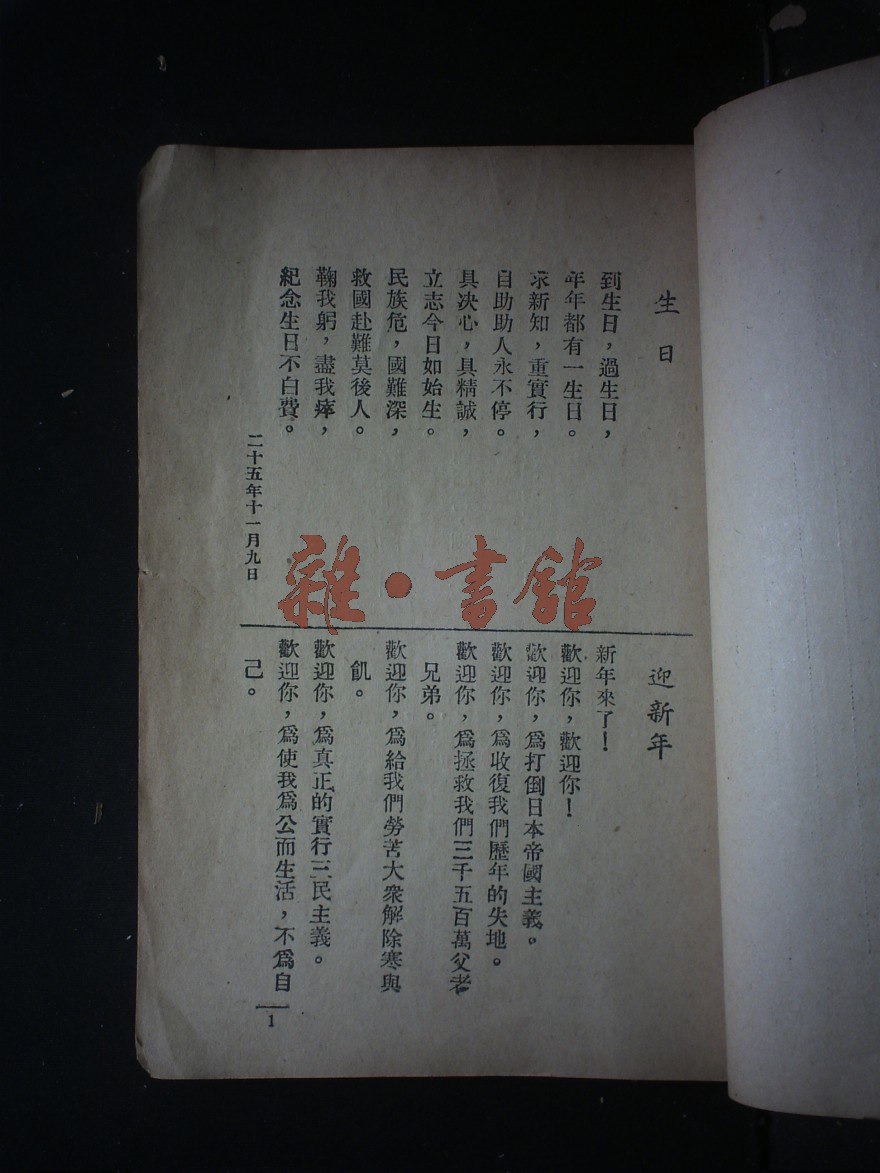 生日
到生日，過生日，
年年都有一生日。
求新知，重實行，
自助助人永不停。
具决心，具精誠，
立志今日如始生。
民族危，國難深，
救國赴難莫後人。
鞠我躬，盡我瘁，
紀念生日不白費。
二十五年十一月九日
迎新年
新年來了！
歡迎你，歡迎你！
歡迎你，爲打倒日本帝國主義。
歡迎你，爲收復我們歷年的失地。
歡迎你，爲拯救我們三千五百萬父老
兄弟。
歡迎你，爲給我們勞苦大衆解除寒與
飢。
歡迎你，爲真正的實行三民主義。
歡迎你，爲使我爲公而生活，不爲自
己。
1
雜·書館